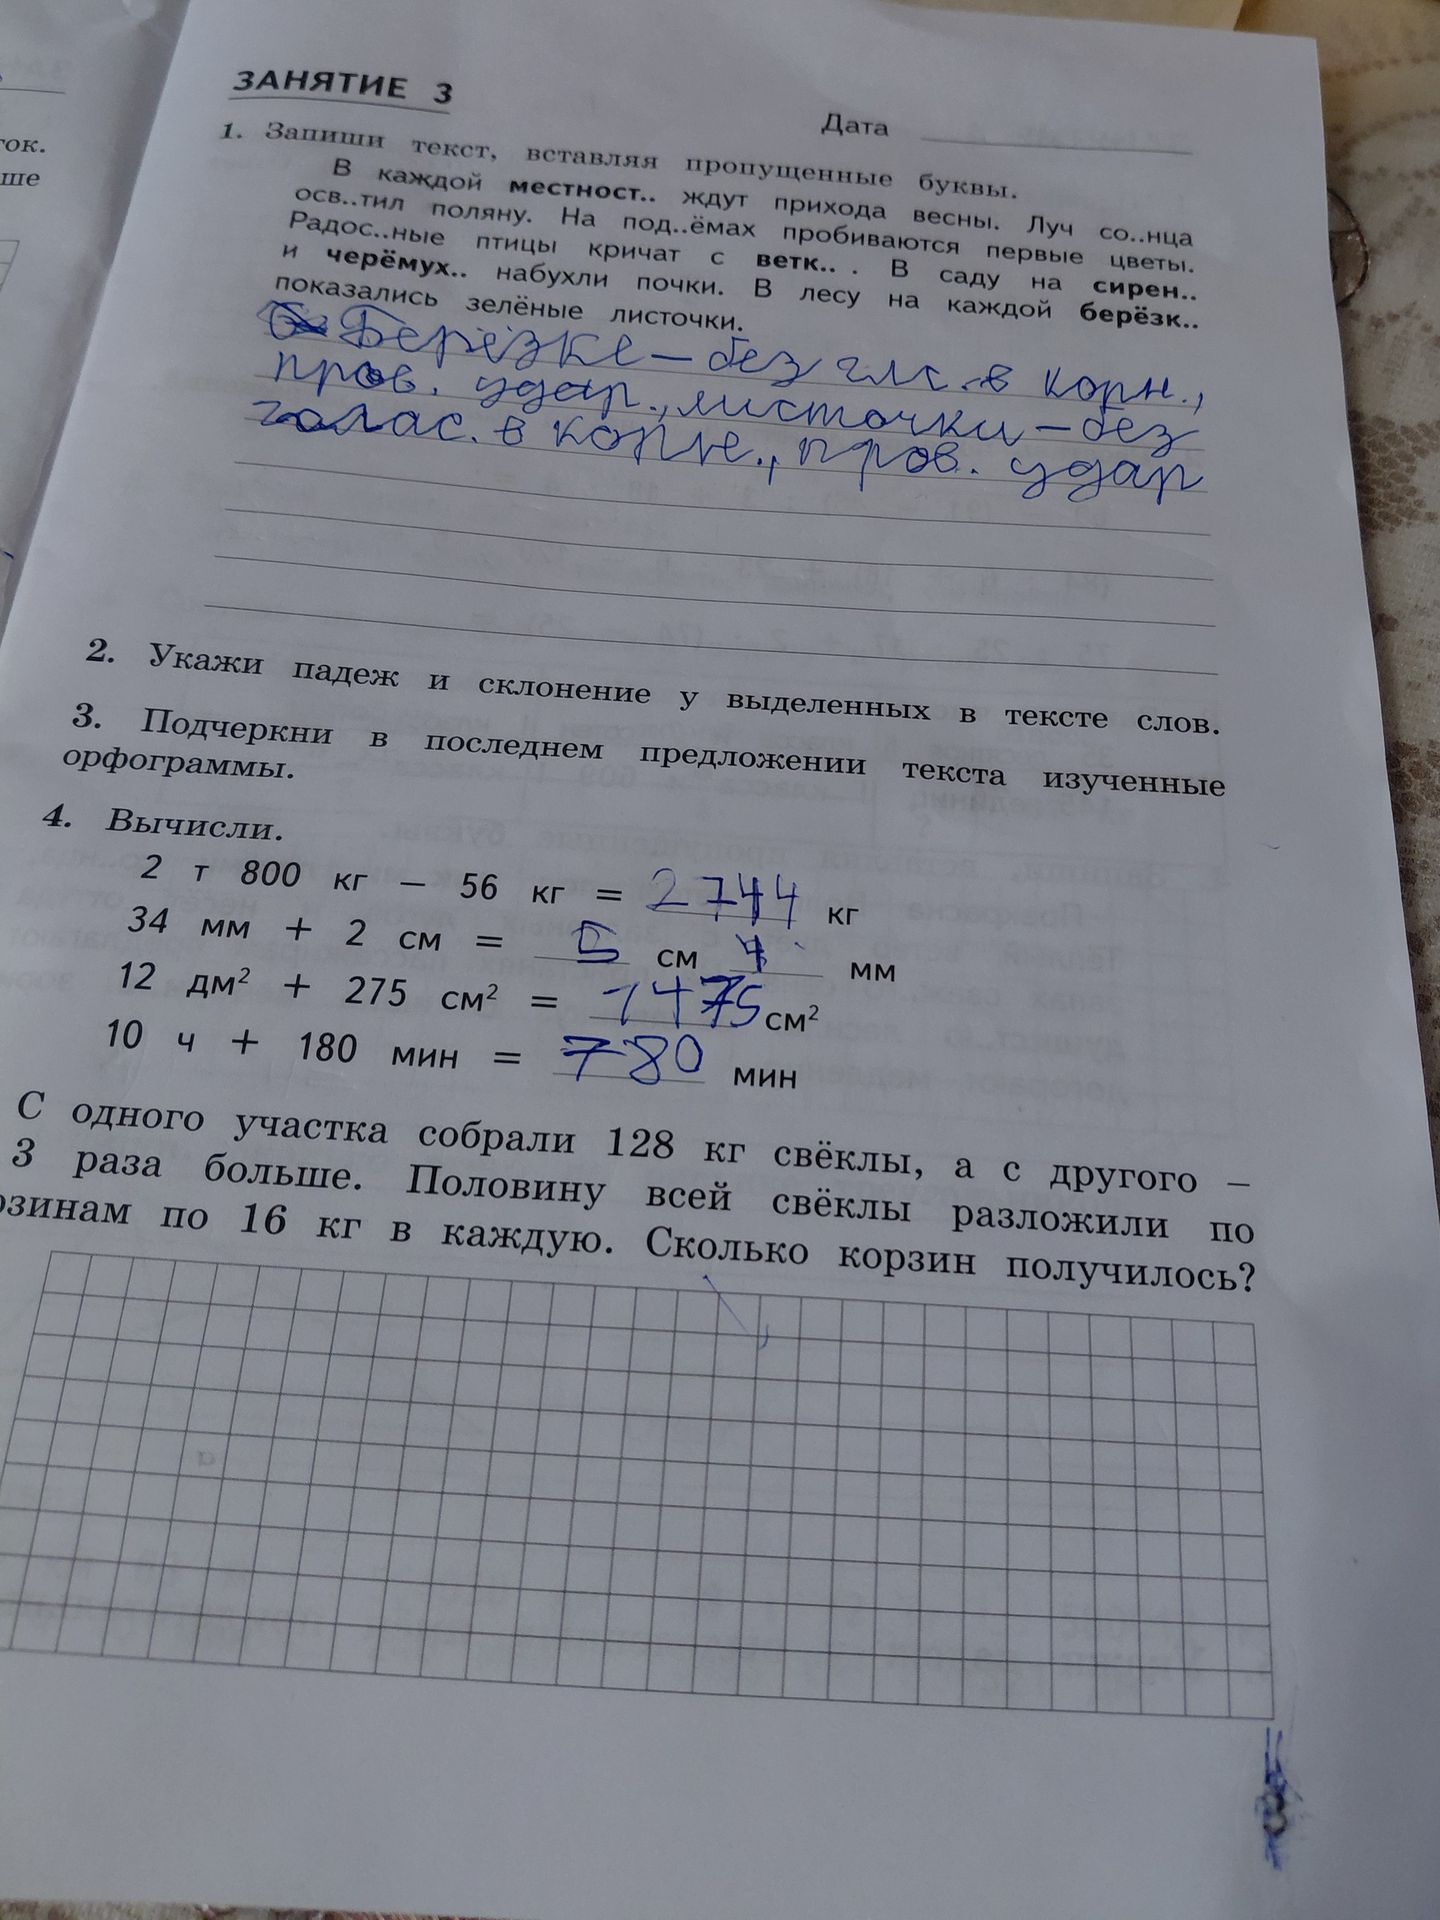 ток.
ше
ЗАНЯТИЕ 3
Дата
1. Запиши текст, вставляя пропущенные буквы.
В каждой местност.. ждут прихода весны. Луч со..нца
осв..тил поляну. На под..ёмах пробиваются первые цветы.
Радос..ные птицы кричат с ветк.. . В саду на сирен..
и черёмух.. набухли почки. В лесу на каждой берёзк..
показались зелёные листочки.
Берёзке – без глс. в корн.,
пров. удар., листочки – без
голас. в корне., пров. удар
2. Укажи падеж и склонение у выделенных в тексте слов.
3. Подчеркни в последнем предложении текста изученные
орфограммы.
4. Вычисли.
2 т 800 кг – 56 кг = 2744 кг
34 мм + 2 см = 5 см 4 мм
12 дм² + 275 см² = 1475 см²
10 ч + 180 мин = 780 мин
С одного участка собрали 128 кг свёклы, а с другого –
3 раза больше. Половину всей свёклы разложили по
рзинам по 16 кг в каждую. Сколько корзин получилось?